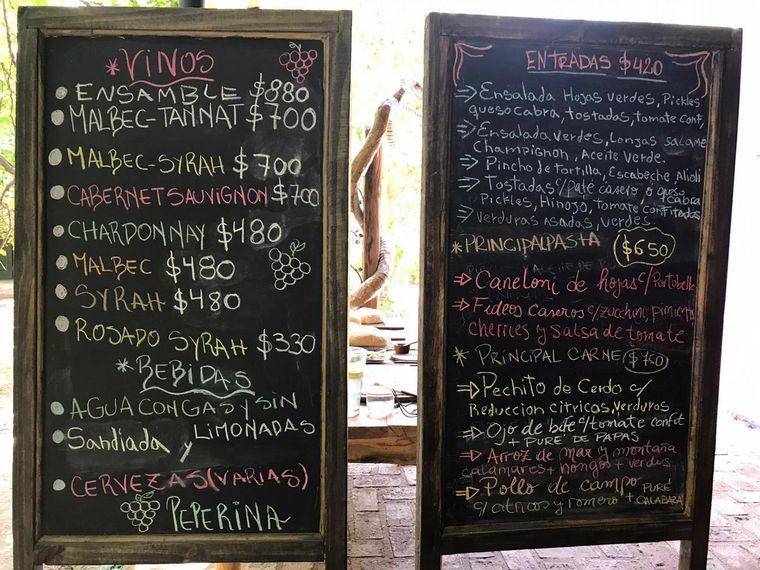 *VINOS
ENSAMBLE $880
MALBEC-TANNAT $700
MALBEC-SYRAH $700
CABERNET SAUVIGNON $700
CHARDONNAY $480
MALBEC $480
SYRAH $480
ROSADO SYRAH $330
*BEBIDAS
AGUA CON GAS Y SIN
Sandiada y LIMONADAS
CERVEZAS (VARIAS)
PEPERINA
ENTRADAS $420
⇒ Ensalada Hojas verdes, Pickles
queso Cabra, tostadas, tomate conf,
⇒ Ensalada Verdes, Lonjas salame
Champignon, Aceite Verde.
⇒ Pincho de tortilla, Escabeche Alioli
⇒ Tostadas c/paté casero, o queso cabra
Pickles, Hinojo, tomate confitados
⇒ verduras asadas, verdes
*PRINCIPAL PASTA $650
⇒ Caneloni de hojas c/Portobello
⇒ Fideos Caseros c/zucchini, pimiento,
cherries y salsa de tomate
* PRINCIPAL CARNE $750
⇒ Pechito de Cerdo c/
Reduccion citricas, verduras
⇒ Ojo de bife c/tomate confit
+ PURÉ DE PAPAS
⇒ Arroz de mar y montaña
calamares + hongos + verdes
⇒ Pollo de campo
c/citricos y romero + PURÉ CALABAZA